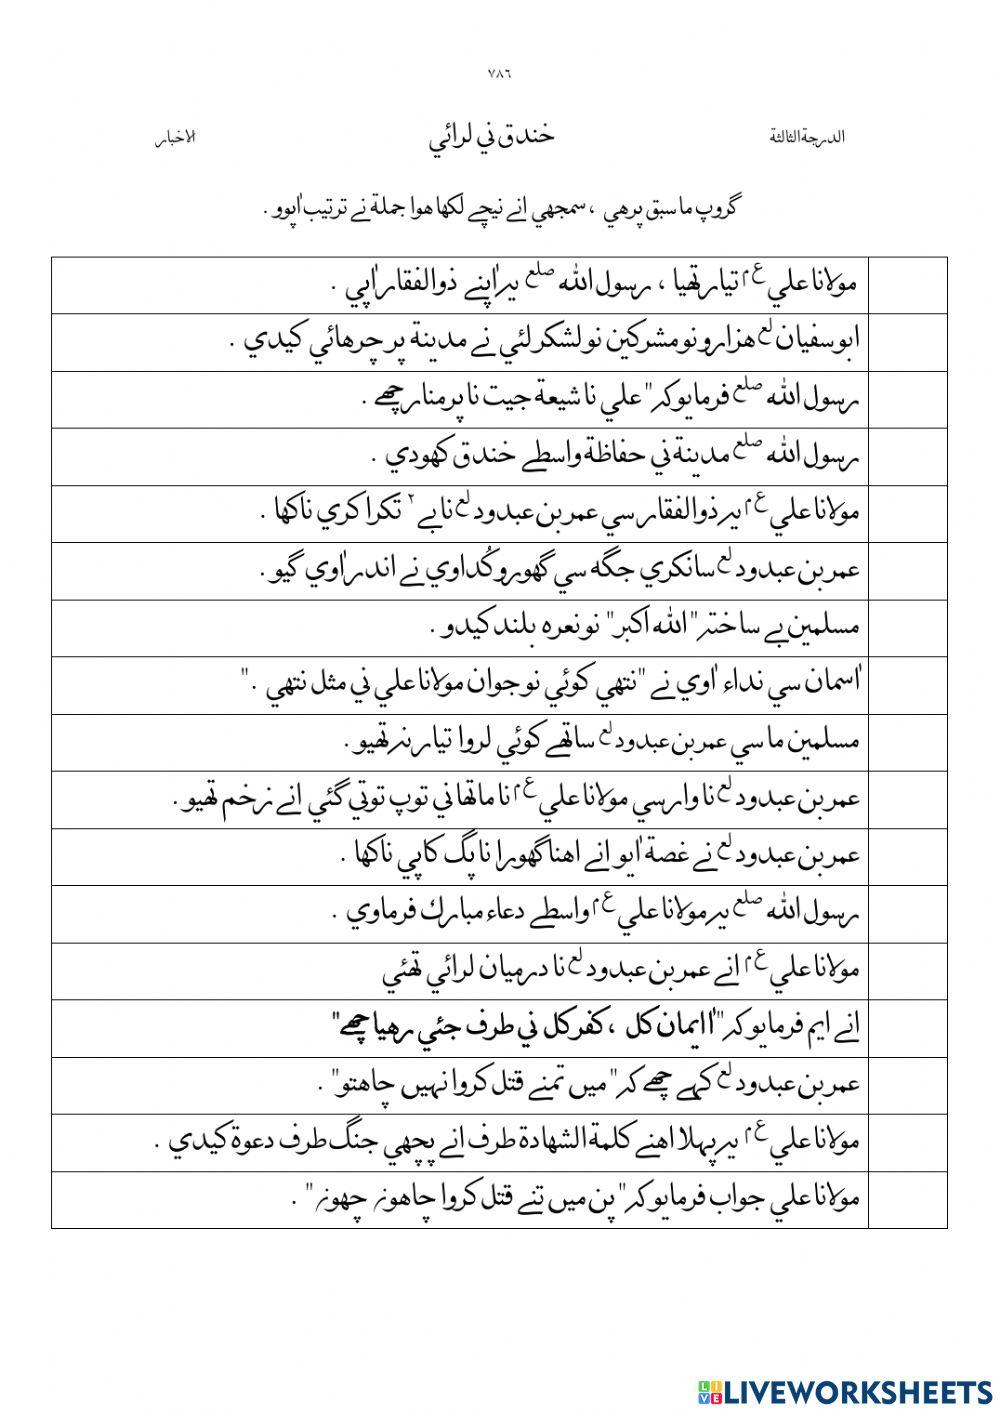 ٧٨٦
الدرجة الثالثة
خندق ني لرائي
الاخبار
گروپ ما سبق پرهي ، سمجهي انے نيچے لكها هوا جملة نے ترتيب اٰپوو .
مولانا علي ع م تيار تهيا ، رسول الله صلع يہ اٰپنے ذوالفقار اٰپي .
ابو سفيان لع هزارو نو مشركين نو لشكر لئي نے مدينة پر چرهائي كيدي .
رسول الله صلع فرمايو كہ "علي نا شيعة جيت نا پرمنار چھے .
رسول الله صلع مدينة ني حفاظة واسطے خندق كهودي .
مولانا علي ع م يہ ذوالفقار سي عمر بن عبدود لع نا بے ٢ تكرا كري ناكها .
عمر بن عبدود لع سانكري جگه سي گهورو كُداوي نے اندر اٰوي گيو .
مسلمين بے ساختہ "الله اكبر" نو نعره بلند كيدو .
اٰسمان سي نداء اٰوي نے "نتهي كوئي نوجوان مولانا علي ني مثل نتهي ."
مسلمين ما سي عمر بن عبدود لع ساتهے كوئي لروا تيار نہ تهيو .
عمر بن عبدود لع نا وار سي مولانا علي ع م نا ماتها ني توپ توتي گئي انے زخم تهيو .
عمر بن عبدود لع نے غصة اٰيو انے اهنا گهورا نا پگ كاپي ناكها .
رسول الله صلع يہ مولانا علي ع م واسطے دعاء مبارك فرماوي .
مولانا علي ع م انے عمر بن عبدود لع نا درميان لرائي تهئي
انے ايم فرمايو كہ "اٰ ايمان كل ، كفر كل ني طرف جئي رهيا چھے"
عمر بن عبدود لع كهے چھے كہ "ميں تمنے قتل كروا نهيں چاهتو" .
مولانا علي ع م يہ پهلا اهنے كلمة الشهادة طرف انے پچهي جنگ طرف دعوة كيدي .
مولانا علي جواب فرمايو كہ "پن ميں تنے قتل كروا چاهوں چهوں" .
LIVEWORKSHEETS